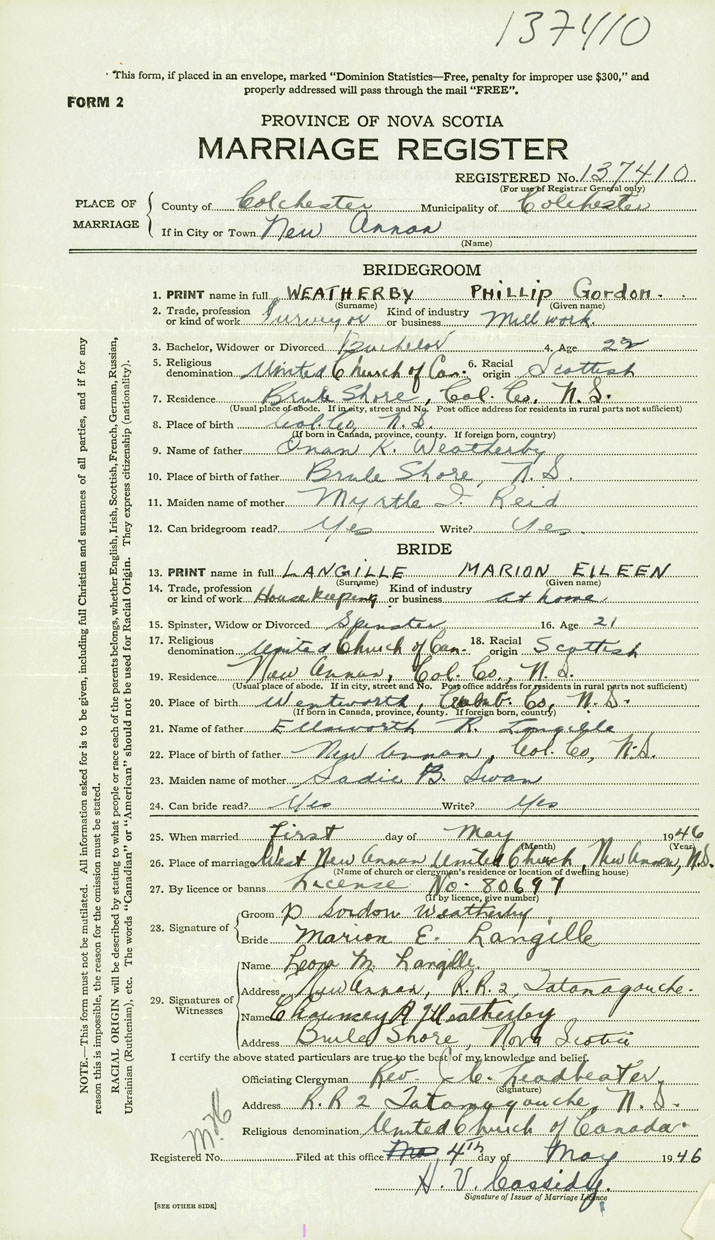 137410
"This form, if placed in an envelope, marked "Dominion Statistics—Free, penalty for improper use $300," and
properly addressed will pass through the mail "FREE".
FORM 2
PROVINCE OF NOVA SCOTIA
MARRIAGE REGISTER
REGISTERED No. 137410
(For use of Registrar General only)
PLACE OF MARRIAGE
County of Colchester Municipality of Colchester
If in City or Town New Annan
(Name)
BRIDEGROOM
1. PRINT name in full WEATHERBY PHILLIP Gordon.
(Surname) (Given name)
2. Trade, profession or kind of work Surveyor Kind of industry or business Mill work.
3. Bachelor, Widower or Divorced Bachelor 4. Age 22
5. Religious denomination United Church of Can. 6. Racial origin Scottish
7. Residence Brule Shore, Col. Co, N. S.
(Usual place of abode. If in city, street and No. Post office address for residents in rural parts not sufficient)
8. Place of birth Col. Co, N. S.
(If born in Canada, province, county. If foreign born, country)
9. Name of father K. Weatherby
10. Place of birth of father Brule Shore, N. S.
11. Maiden name of mother Myrtle I. Reid
12. Can bridegroom read? Yes Write? Yes.
BRIDE
13. PRINT name in full LANGILLE MARION EILEEN
(Surname) (Given name)
14. Trade, profession or kind of work House keeping Kind of industry or business at home
15. Spinster, Widow or Divorced Spinster 16. Age 21
17. Religious denomination United Church of Can. 18. Racial origin Scottish
19. Residence New Annan, Col. Co., N. S.
(Usual place of abode. If in city, street and No. Post office address for residents in rural parts not sufficient)
20. Place of birth Wentworth, Cumb. Co, N. S.
(If born in Canada, province, county. If foreign born, country)
21. Name of father Ellsworth K. Langille
22. Place of birth of father New Annan, Col. Co, N.S.
23. Maiden name of mother Sadie B. Swan
24. Can bride read? Yes Write? Yes
25. When married First day of May 1946
(Month) (Year)
26. Place of marriage West New Annan United Church, New Annan, N.S.
(Name of church or clergyman's residence or location of dwelling house)
27. By licence or banns License No. 80697
(If by licence, give number)
28. Signature of
Groom P Gordon Weatherby
Bride Marion E. Langille
29. Signatures of Witnesses
Name Leona M. Langille.
Address New Annan, R.R. 2, Tatamagouche.
Name Chauncey A Weatherby
Address Brule Shore, Nova Scotia
I certify the above stated particulars are true to the best of my knowledge and belief.
Officiating Clergyman Rev. J. C. Leadbeater
(Signature)
Address R. R 2 Tatamagouche, N. S.
Religious denomination United Church of Canada.
Registered No. Filed at this office 4th day of May 1946
H. V. Cassidy
Signature of Issuer of Marriage Licence
[SEE OTHER SIDE]
NOTE.—This form must not be mutilated. All information asked for is to be given, including full Christian and surnames of all parties, and if for any
reason this is impossible, the reason for the omission must be stated.
RACIAL ORIGIN will be described by stating to what people or race each of the parents belongs, whether English, Irish, Scottish, French, German, Russian,
Ukrainian (Ruthenian), etc. The words "Canadian" or "American" should not be used for Racial Origin. They express citizenship (nationality).